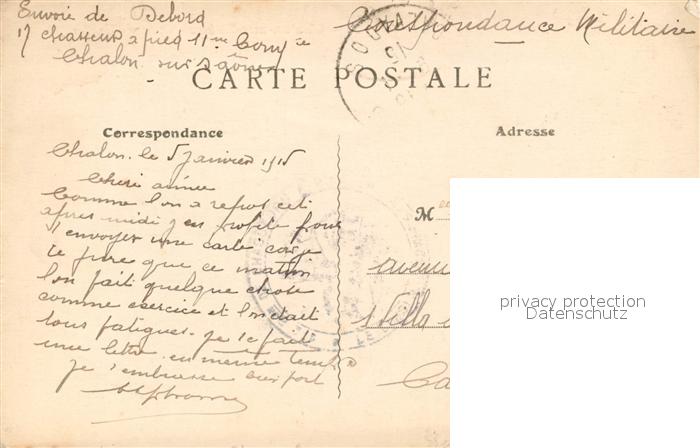 Envoie de Debord
17 chasseur à pied 11me Compie
Chalon sur Saône
Correspondance Militaire
CARTE POSTALE
Correspondance
Adresse
Chalon. le 5 janvier 1915
Cheri année
Comme l'on a repos cet
apres midi j'en profite pour
t'envoyer une carte car je
te jure que ce matin
l'on fait quelque chose
comme exercice et l'on était
tous fatigues. je te fait
une lettre en même temps
je t'embrasse bien fort
Alphonse
M
avenu
Villa
Ca
privacy protection
Datenschutz